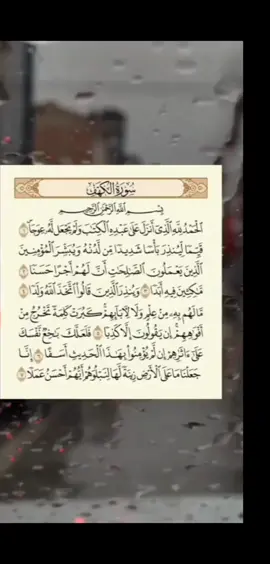 سُورَةُ الكَهْفِ
بِسْمِ اللَّهِ الرَّحْمَٰنِ الرَّحِيمِ
الْحَمْدُ لِلَّهِ الَّذِي أَنزَلَ عَلَىٰ عَبْدِهِ الْكِتَٰبَ وَلَمْ يَجْعَل لَّهُ عِوَجَا ۜ ١
قَيِّمًا لِّيُنذِرَ بَأْسًا شَدِيدًا مِّن لَّدُنْهُ وَيُبَشِّرَ الْمُؤْمِنِينَ
الَّذِينَ يَعْمَلُونَ الصَّٰلِحَٰتِ أَنَّ لَهُمْ أَجْرًا حَسَنًا ٢
مَّٰكِثِينَ فِيهِ أَبَدًا ٣ وَيُنذِرَ الَّذِينَ قَالُوا اتَّخَذَ اللَّهُ وَلَدًا ٤
مَّا لَهُم بِهِ مِنْ عِلْمٍ وَلَا لِآبَائِهِمْ كَبُرَتْ كَلِمَةً تَخْرُجُ مِنْ
أَفْوَٰهِهِمْ إِن يَقُولُونَ إِلَّا كَذِبًا ٥ فَلَعَلَّكَ بَٰخِعٌ نَّفْسَكَ
عَلَىٰ ءَاثَٰرِهِمْ إِن لَّمْ يُؤْمِنُوا بِهَٰذَا الْحَدِيثِ أَسَفًا ٦ إِنَّا
جَعَلْنَا مَا عَلَى الْأَرْضِ زِينَةً لَّهَا لِنَبْلُوَهُمْ أَيُّهُمْ أَحْسَنُ عَمَلًا ٧